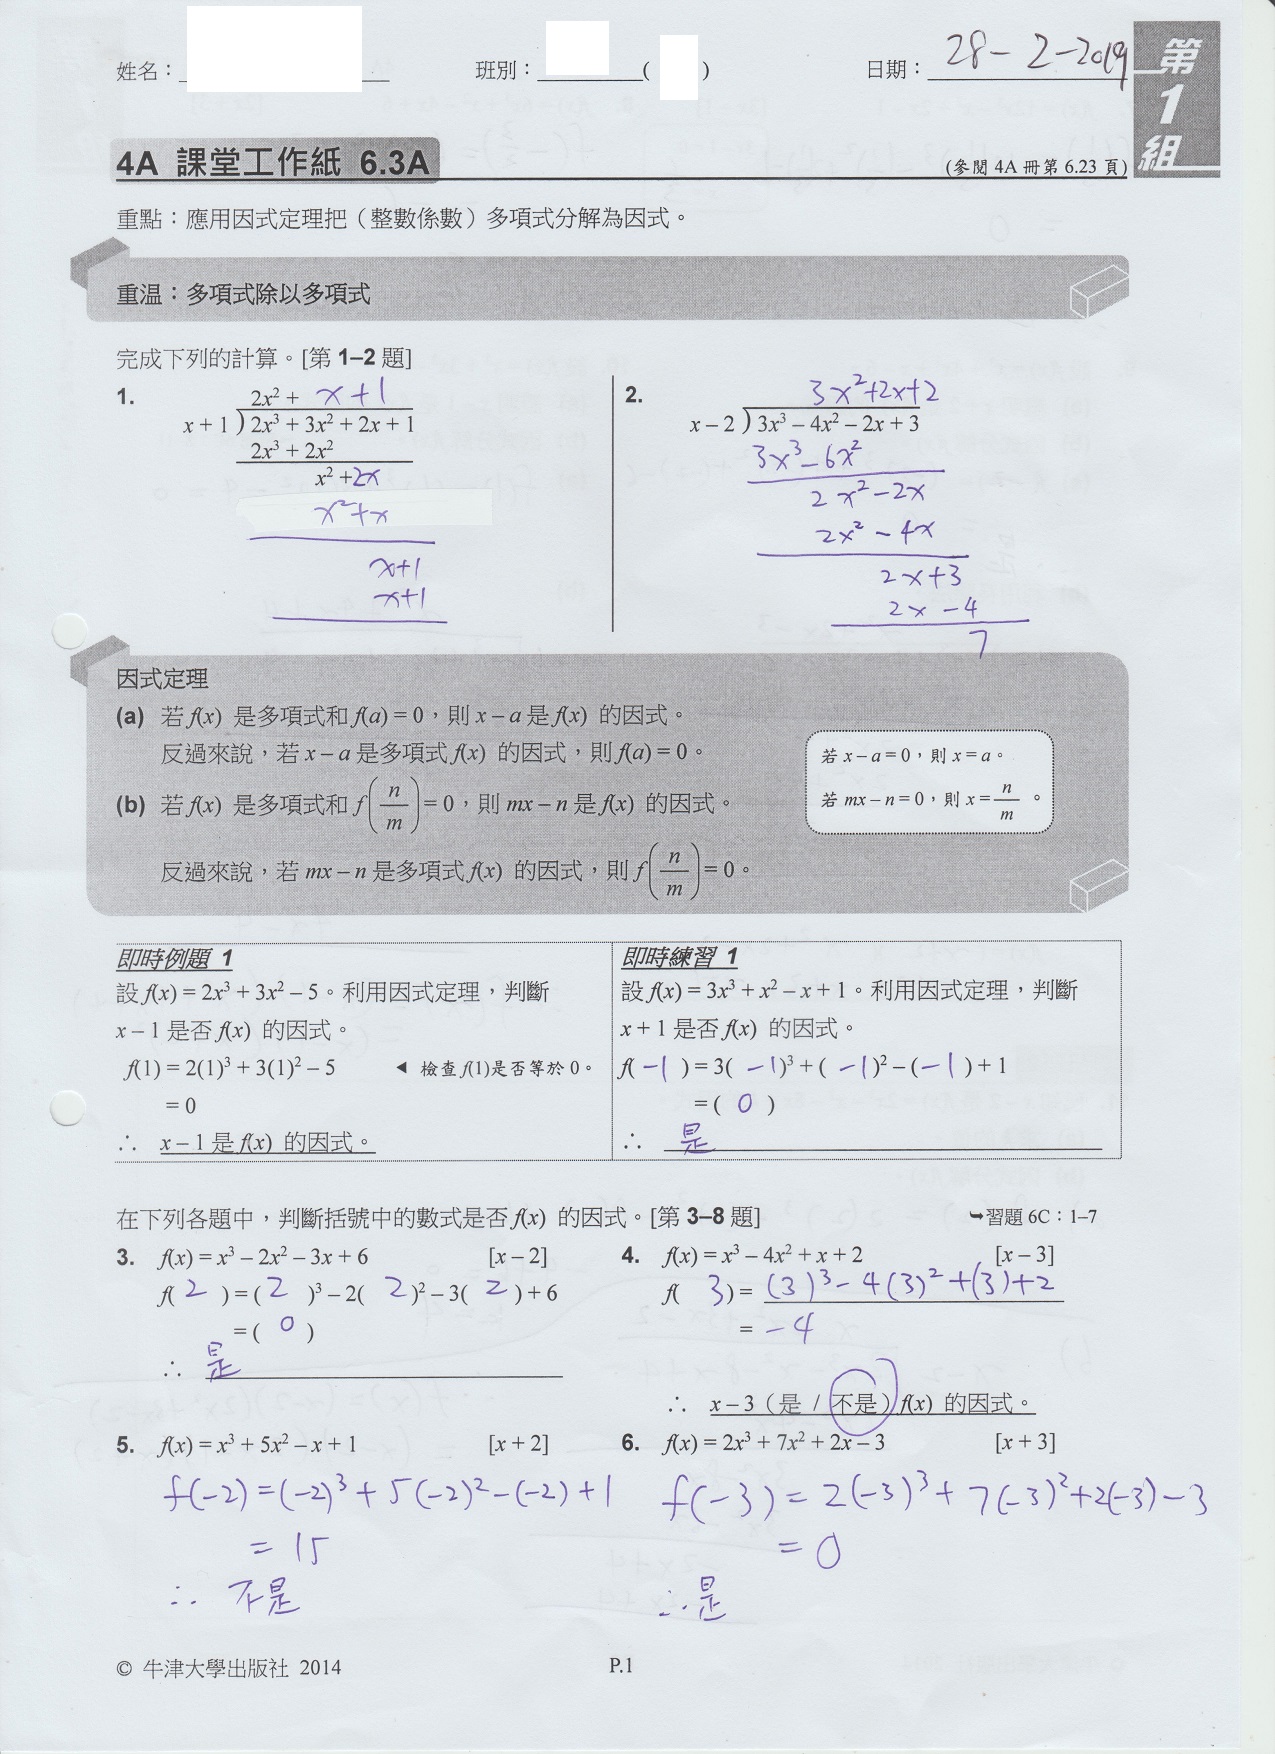 姓名： 班別： ( ) 日期： 28-2-2019
第
1
組
4A 課堂工作紙 6.3A
(參閱 4A 冊第 6.23 頁)
重點：應用因式定理把（整數係數）多項式分解為因式。
重温：多項式除以多項式
完成下列的計算。[第 1–2 題]
1.
2x² + x+1
x + 1 ) 2x³ + 3x² + 2x + 1
2x³ + 2x²
x² + 2x
x²+x
x+1
x+1
2.
3x²+2x+2
x – 2 ) 3x³ – 4x² – 2x + 3
3x³-6x²
2x²-2x
2x²-4x
2x+3
2x-4
7
因式定理
(a) 若 f(x) 是多項式和 f(a) = 0，則 x – a 是 f(x) 的因式。
反過來說，若 x – a 是多項式 f(x) 的因式，則 f(a) = 0。
(b) 若 f(x) 是多項式和 f(n/m) = 0，則 mx – n 是 f(x) 的因式。
反過來說，若 mx – n 是多項式 f(x) 的因式，則 f(n/m) = 0。
若 x – a = 0，則 x = a。
若 mx – n = 0，則 x = n/m。
即時例題 1
設 f(x) = 2x³ + 3x² – 5。利用因式定理，判斷
x – 1 是否 f(x) 的因式。
f(1) = 2(1)³ + 3(1)² – 5 ◄ 檢查 f(1)是否等於 0。
= 0
∴ x – 1 是 f(x) 的因式。
即時練習 1
設 f(x) = 3x³ + x² – x + 1。利用因式定理，判斷
x + 1 是否 f(x) 的因式。
f( -1 ) = 3( -1 )³ + ( -1 )² – ( -1 ) + 1
= ( 0 )
∴ 是
在下列各題中，判斷括號中的數式是否 f(x) 的因式。[第 3–8 題] ➥習題 6C：1–7
3. f(x) = x³ – 2x² – 3x + 6 [x – 2]
f( 2 ) = ( 2 )³ – 2( 2 )² – 3( 2 ) + 6
= ( 0 )
∴ 是
4. f(x) = x³ – 4x² + x + 2 [x – 3]
f( 3 ) = (3)³-4(3)²+(3)+2
= -4
∴ x – 3（是 / 不是）f(x) 的因式。
5. f(x) = x³ + 5x² – x + 1 [x + 2]
f(-2)=(-2)³+5(-2)²-(-2)+1
= 15
∴ 不是
6. f(x) = 2x³ + 7x² + 2x – 3 [x + 3]
f(-3)=2(-3)³+7(-3)²+2(-3)-3
= 0
∴ 是
© 牛津大學出版社 2014 P.1